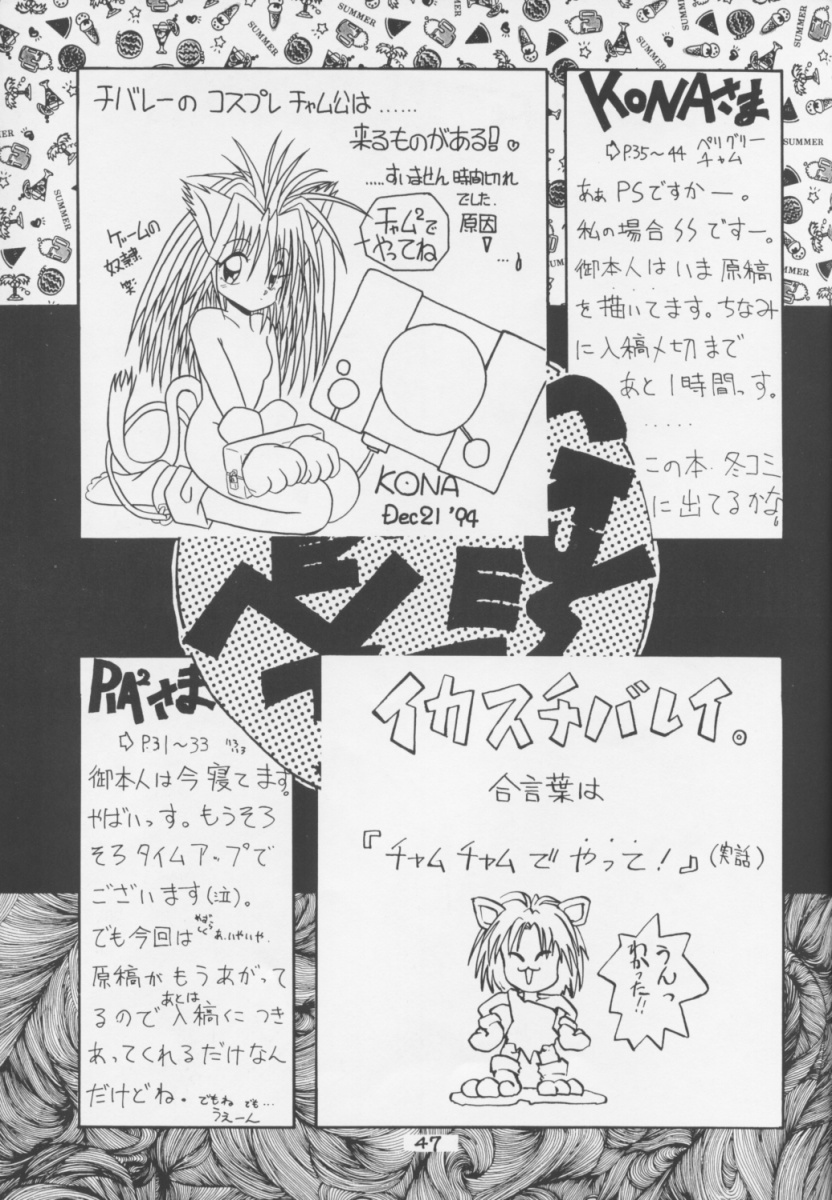 チバレーの コスプレ チャム公は……
来るものがある!!♥
……すいません 時間切れ
でした.
原因
…♪
チャム²で
やってね
ゲームの
奴隷
笑
KONA
Dec 21 '94
KONAさま
⇨P.35〜44 ペリグリー
チャム
あぁ PSですかー。
私の場合 SSですー。
御本人は いま 原稿
を描いてます。ちなみ
に入稿〆切まで
あと 1時間っす。
……
この本、冬コミ
に出てるかな。
PIA²さま
⇨P.31〜33
御本人は今寝てます。
やばいっす。もうそろ
そろ タイムアップで
ございます(泣)。
でも今回は あ、いやいや
原稿が もうあがって
るので あとは 入稿に つき
あってくれるだけなん
だけどね。でもね でも…
うえーん
イカスチバレイ。
合言葉は
『チャム チャム で やって!』(実話)
うんっ
わかった!!
SUMMER
47